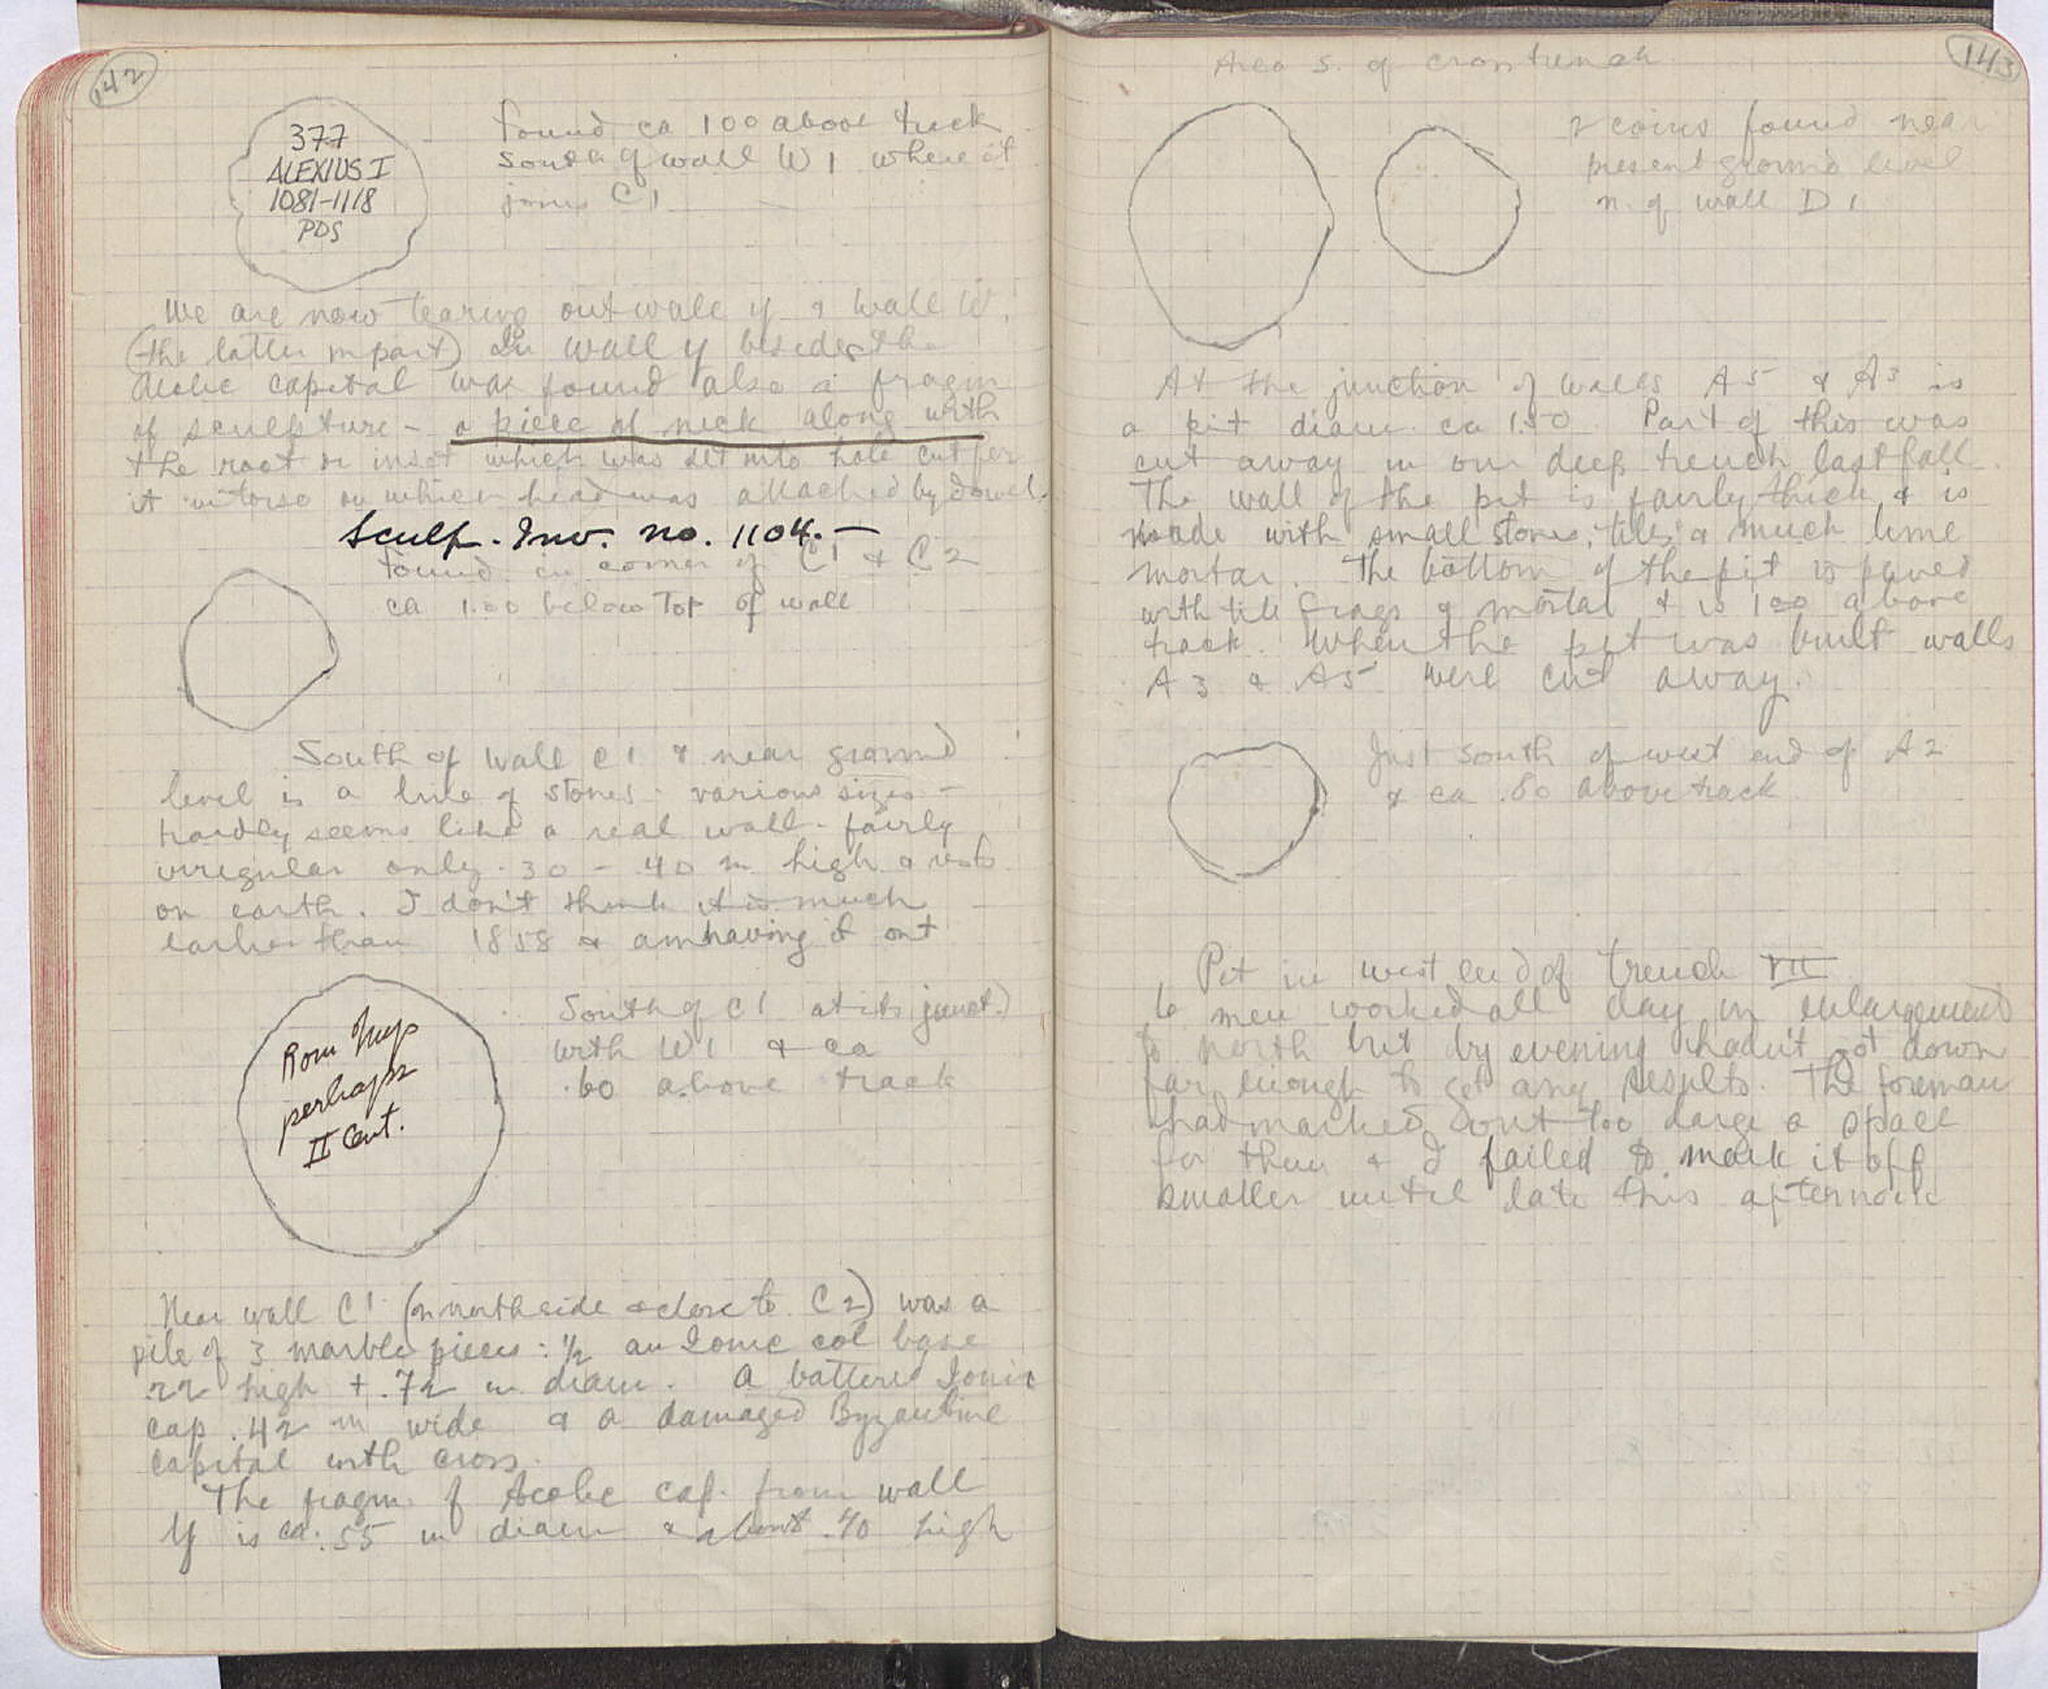 142
377
ALEXIUS I
1081-1118
PDS
Found ca 1 00 above track
South of wall W 1 where it
joins C 1
We are now tearing out wall y & wall W,
(the latter in part) In wall y besides the
Aeolic capital was found also a fragm
of sculpture - a piece of neck along with
the root or inset which was set into hole cut for
it in torso on which head was attached by dowel.
Sculp. Inv. no. 1104. -
Found in corner of C1 & C2
ca 1.00 below Top of wall
South of wall C1 & near ground
level is a line of stones - various sizes -
hardly seems like a real wall - fairly
irregular only .30 - .40 m high & rests
on earth. I don't think it is much
earlier than 1858 & am having it out
Rom Imp
perhaps
II Cent.
South of C1 at its junct.
with W1 & ca
.60 above track
Near wall C1 (on north side & close to C2) was a
pile of 3 marble pieces : ½ an Ionic col base
.22 high + .72 in diam. A battered Ionic
cap .42 m wide & a damaged Byzantine
capital with cross.
The fragm. of Aeolic cap. from wall
y is ca .55 in diam & about .40 high
143
Area S. of cross trench
2 coins found near
present ground level
n. of wall D 1
At the junction of walls A5 & A3 is
a pit diam. ca 1.50 Part of this was
cut away in our deep trench last fall.
The wall of the pit is fairly thick & is
made with small stones, tiles & much lime
mortar. The bottom of the pit is paved
with tile frags & mortar & is 1 00 above
track. When the pit was built walls
A3 & A5 were cut away.
Just south of west end of A2
& ca .80 above track
Pit in west end of trench VII
6 men worked all day in enlargement
to north but by evening hadn't got down
far enough to get any results. The foreman
had marked out too large a space
for them & I failed to mark it off
smaller until late this afternoon